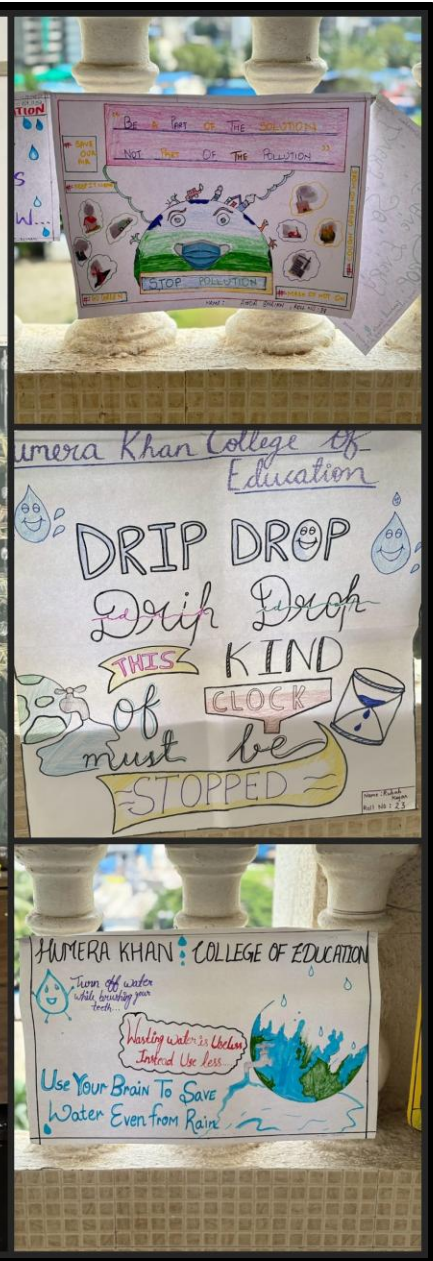 TION
W...
" BE A PART OF THE SOLUTION
NOT PART OF THE POLLUTION "
SAVE
OUR
AIR
STOP POLLUTION
NAME:
umera Khan College of
Education
DRIP DROP
Drip Drop
THIS KIND
of CLOCK
must be
STOPPED
Name:
Roll No: 23
HUMERA KHAN COLLEGE OF EDUCATION
Turn off water
while brushing your
teeth...
Wasting water is Useless
Instead Use less...
Use Your Brain To Save
Water Even from Rain